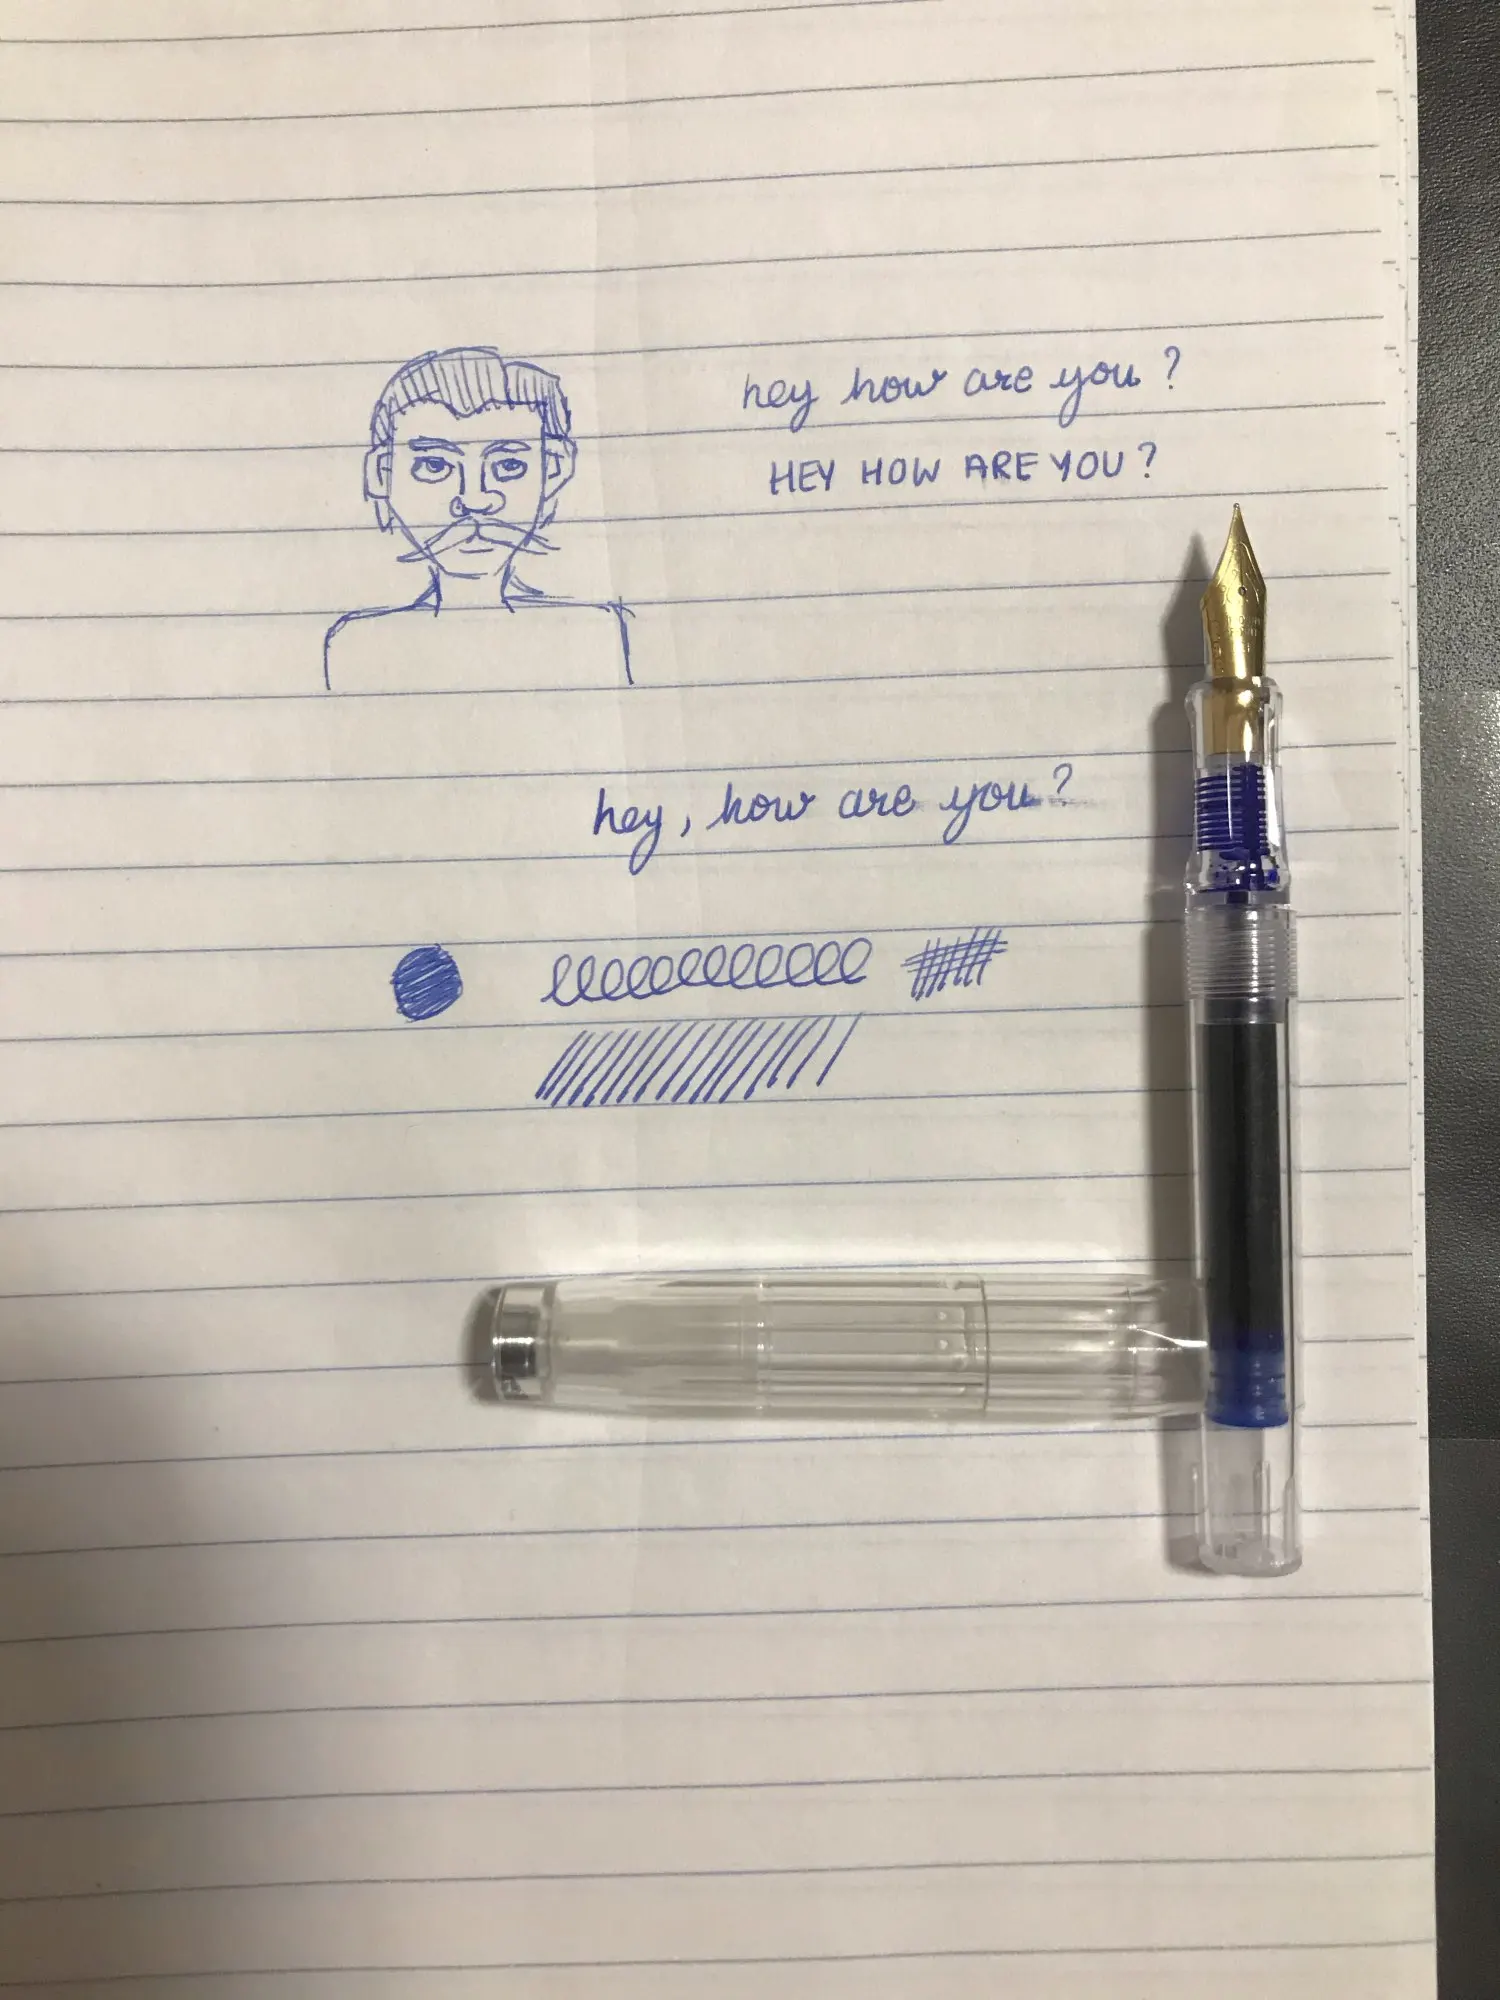 hey how are you?
HEY HOW ARE YOU?
hey, how are you?